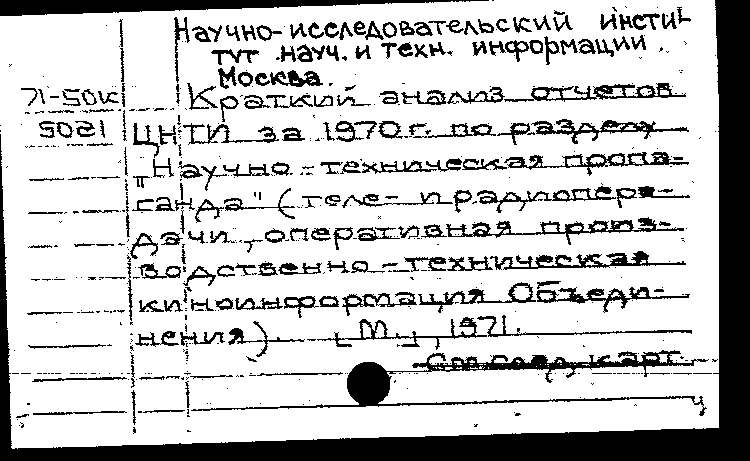 Научно-исследовательский инсти-
тут науч. и техн. информации.
Москва.
71-50к Краткий анализ отчетов
5021 ЦНТИ за 1970 г. по разделу
"Научно-техническая пропа-
ганда" (теле- и радиопере-
дачи, оперативная произ-
водственно-техническая
киноинформация Объеди-
нения). [М.], 1971.
См след. карт.
ч